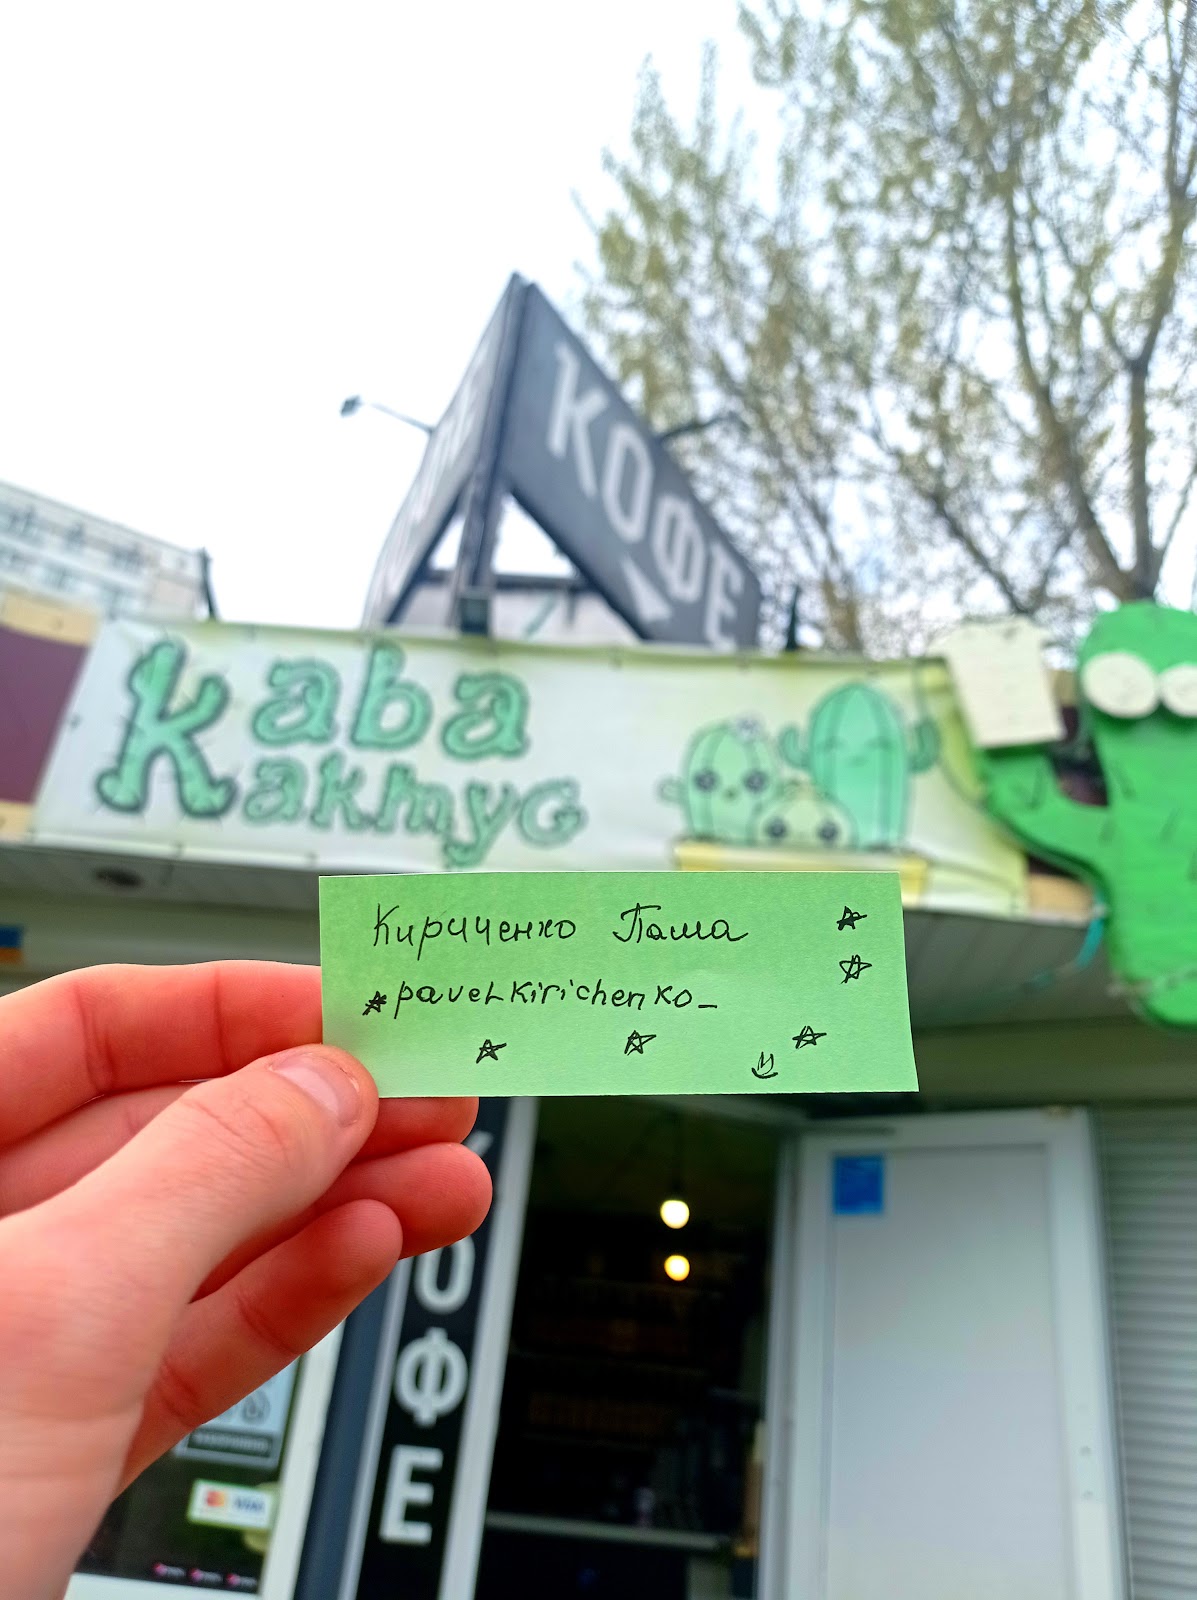 КОФЕ
Kава
Kактус
Кириченко Паша
pavelkirichenko_
КОФЕ
VISA